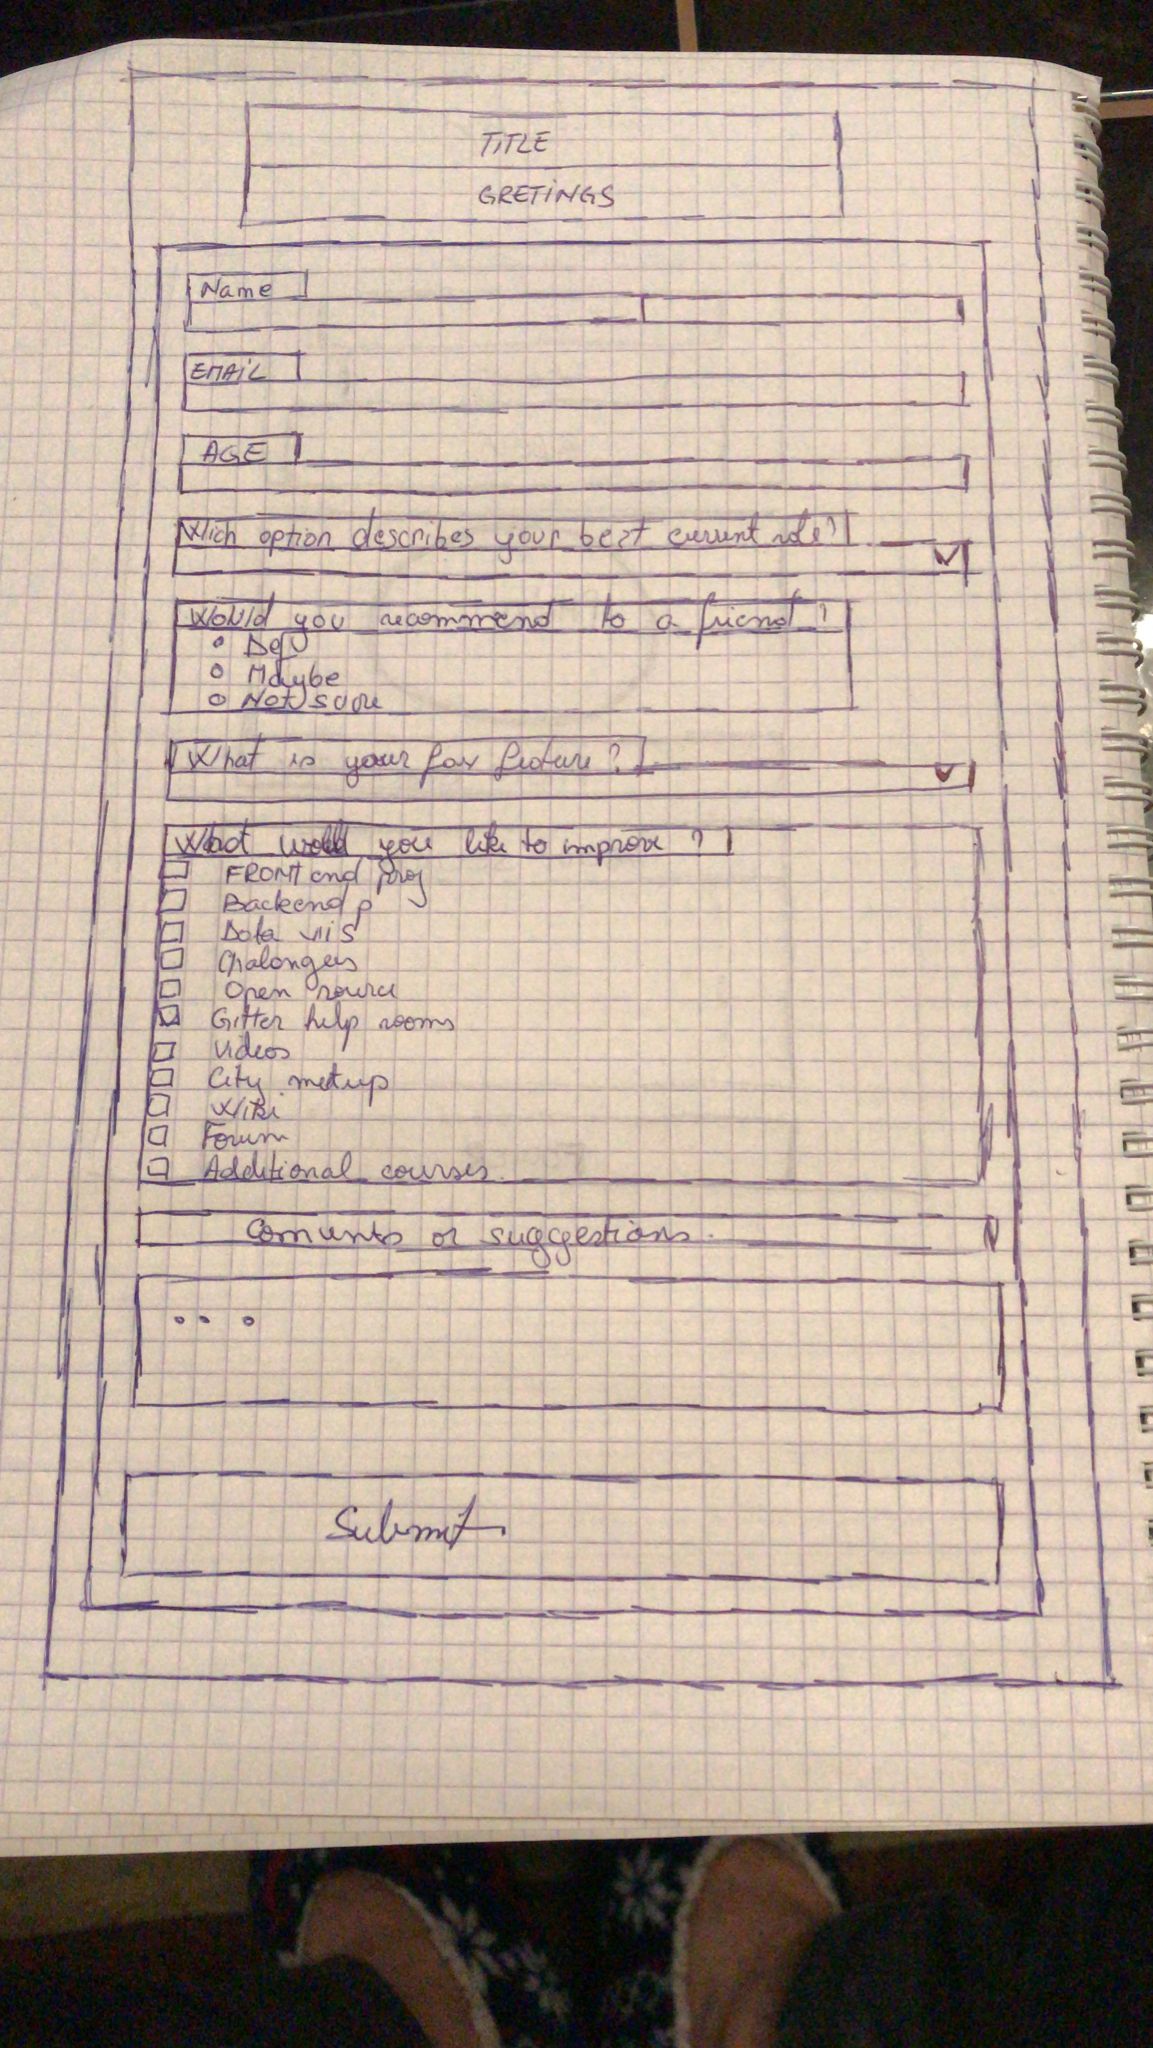 TITLE
GRETINGS
Name
EMAIL
AGE
Wich option describes your best current role?
Would you recommend to a friend?
Defi
Maybe
Not sure
What is your fav feature?
What would you like to improve?
FRONT end proj
Backend p
Data viis
Chalonges
Open source
Gitter help rooms
Videos
City metup
Wiki
Forum
Additional courses
Coments or suggestions.
...
Submit